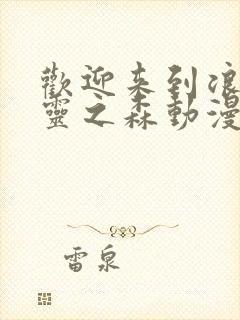 歡迎来到浪
靈之森動漫
雷泉